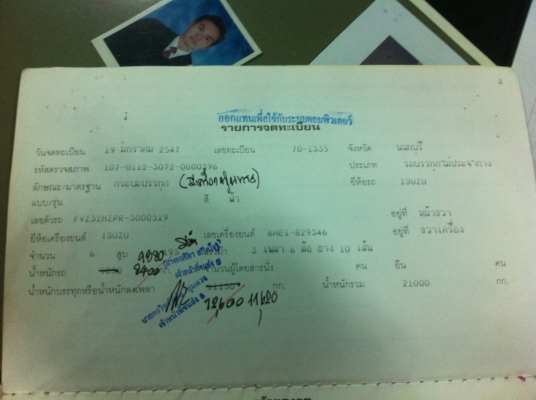 ออกแทนเพื่อใช้กับระบบคอมพิวเตอร์
รายการจดทะเบียน
วันจดทะเบียน 19 มกราคม 2547 เลขทะเบียน 70-1335 จังหวัด นนทบุรี
รหัสตรวจสภาพ 107-0112-3072-0000396 ประเภท รถบรรทุกไม่ประจำทาง
ลักษณะ/มาตรฐาน กระบะบรรทุก ยี่ห้อรถ ISUZU
แบบ/รุ่น สี ฟ้า
เลขตัวรถ FVZ32HZPR-3000319 อยู่ที่ หน้าขวา
ยี่ห้อเครื่องยนต์ ISUZU เลขเครื่องยนต์ 6HE1-829346 อยู่ที่ ขวาเครื่อง
จำนวน 6 สูบ 3 เพลา 6 ล้อ ยาง 10 เส้น
น้ำหนักรถ จำนวนผู้โดยสารนั่ง คน ยืน คน
น้ำหนักบรรทุกหรือน้ำหนักลงเพลา กก. น้ำหนักรวม 21000 กก.
12600 11620